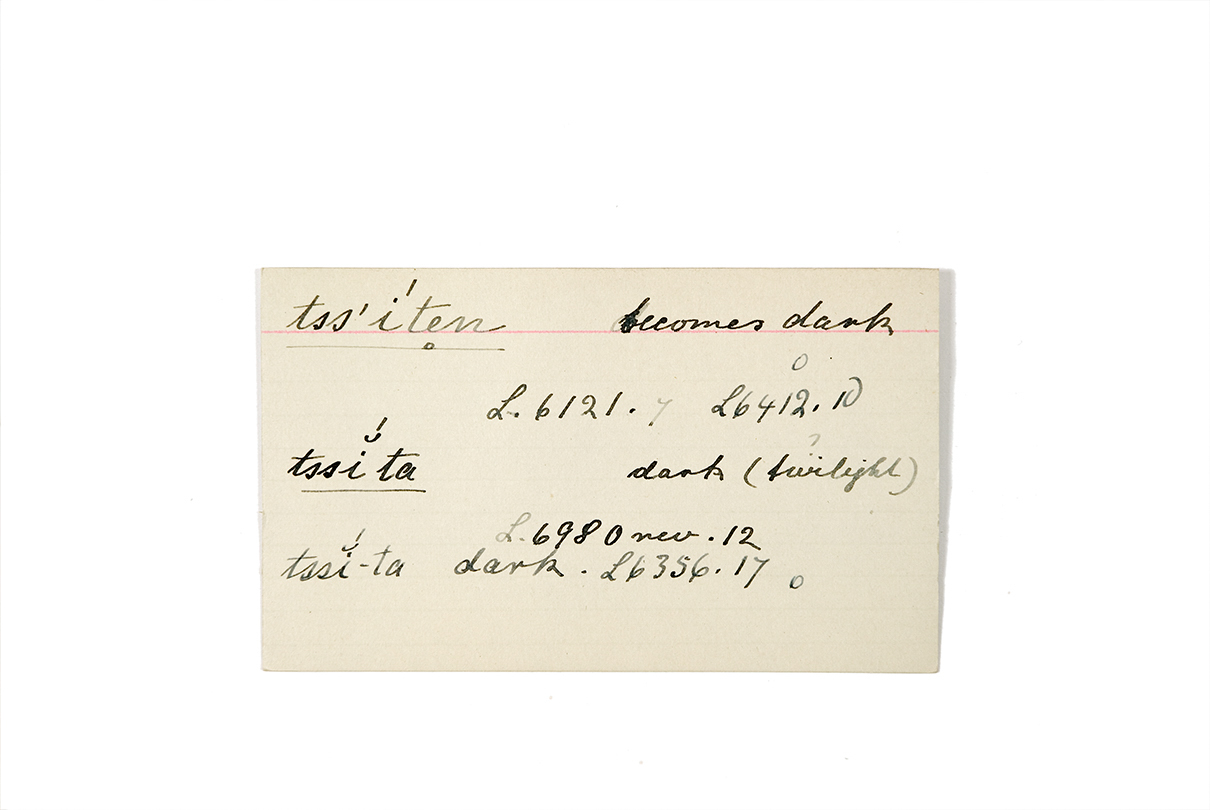 tss'í́ten becomes dark
L. 6121.7 L6412.10
tssĭ́ta dark (twilight)
L. 6980 rev. 12
tssĭ́-ta dark. L6356.17